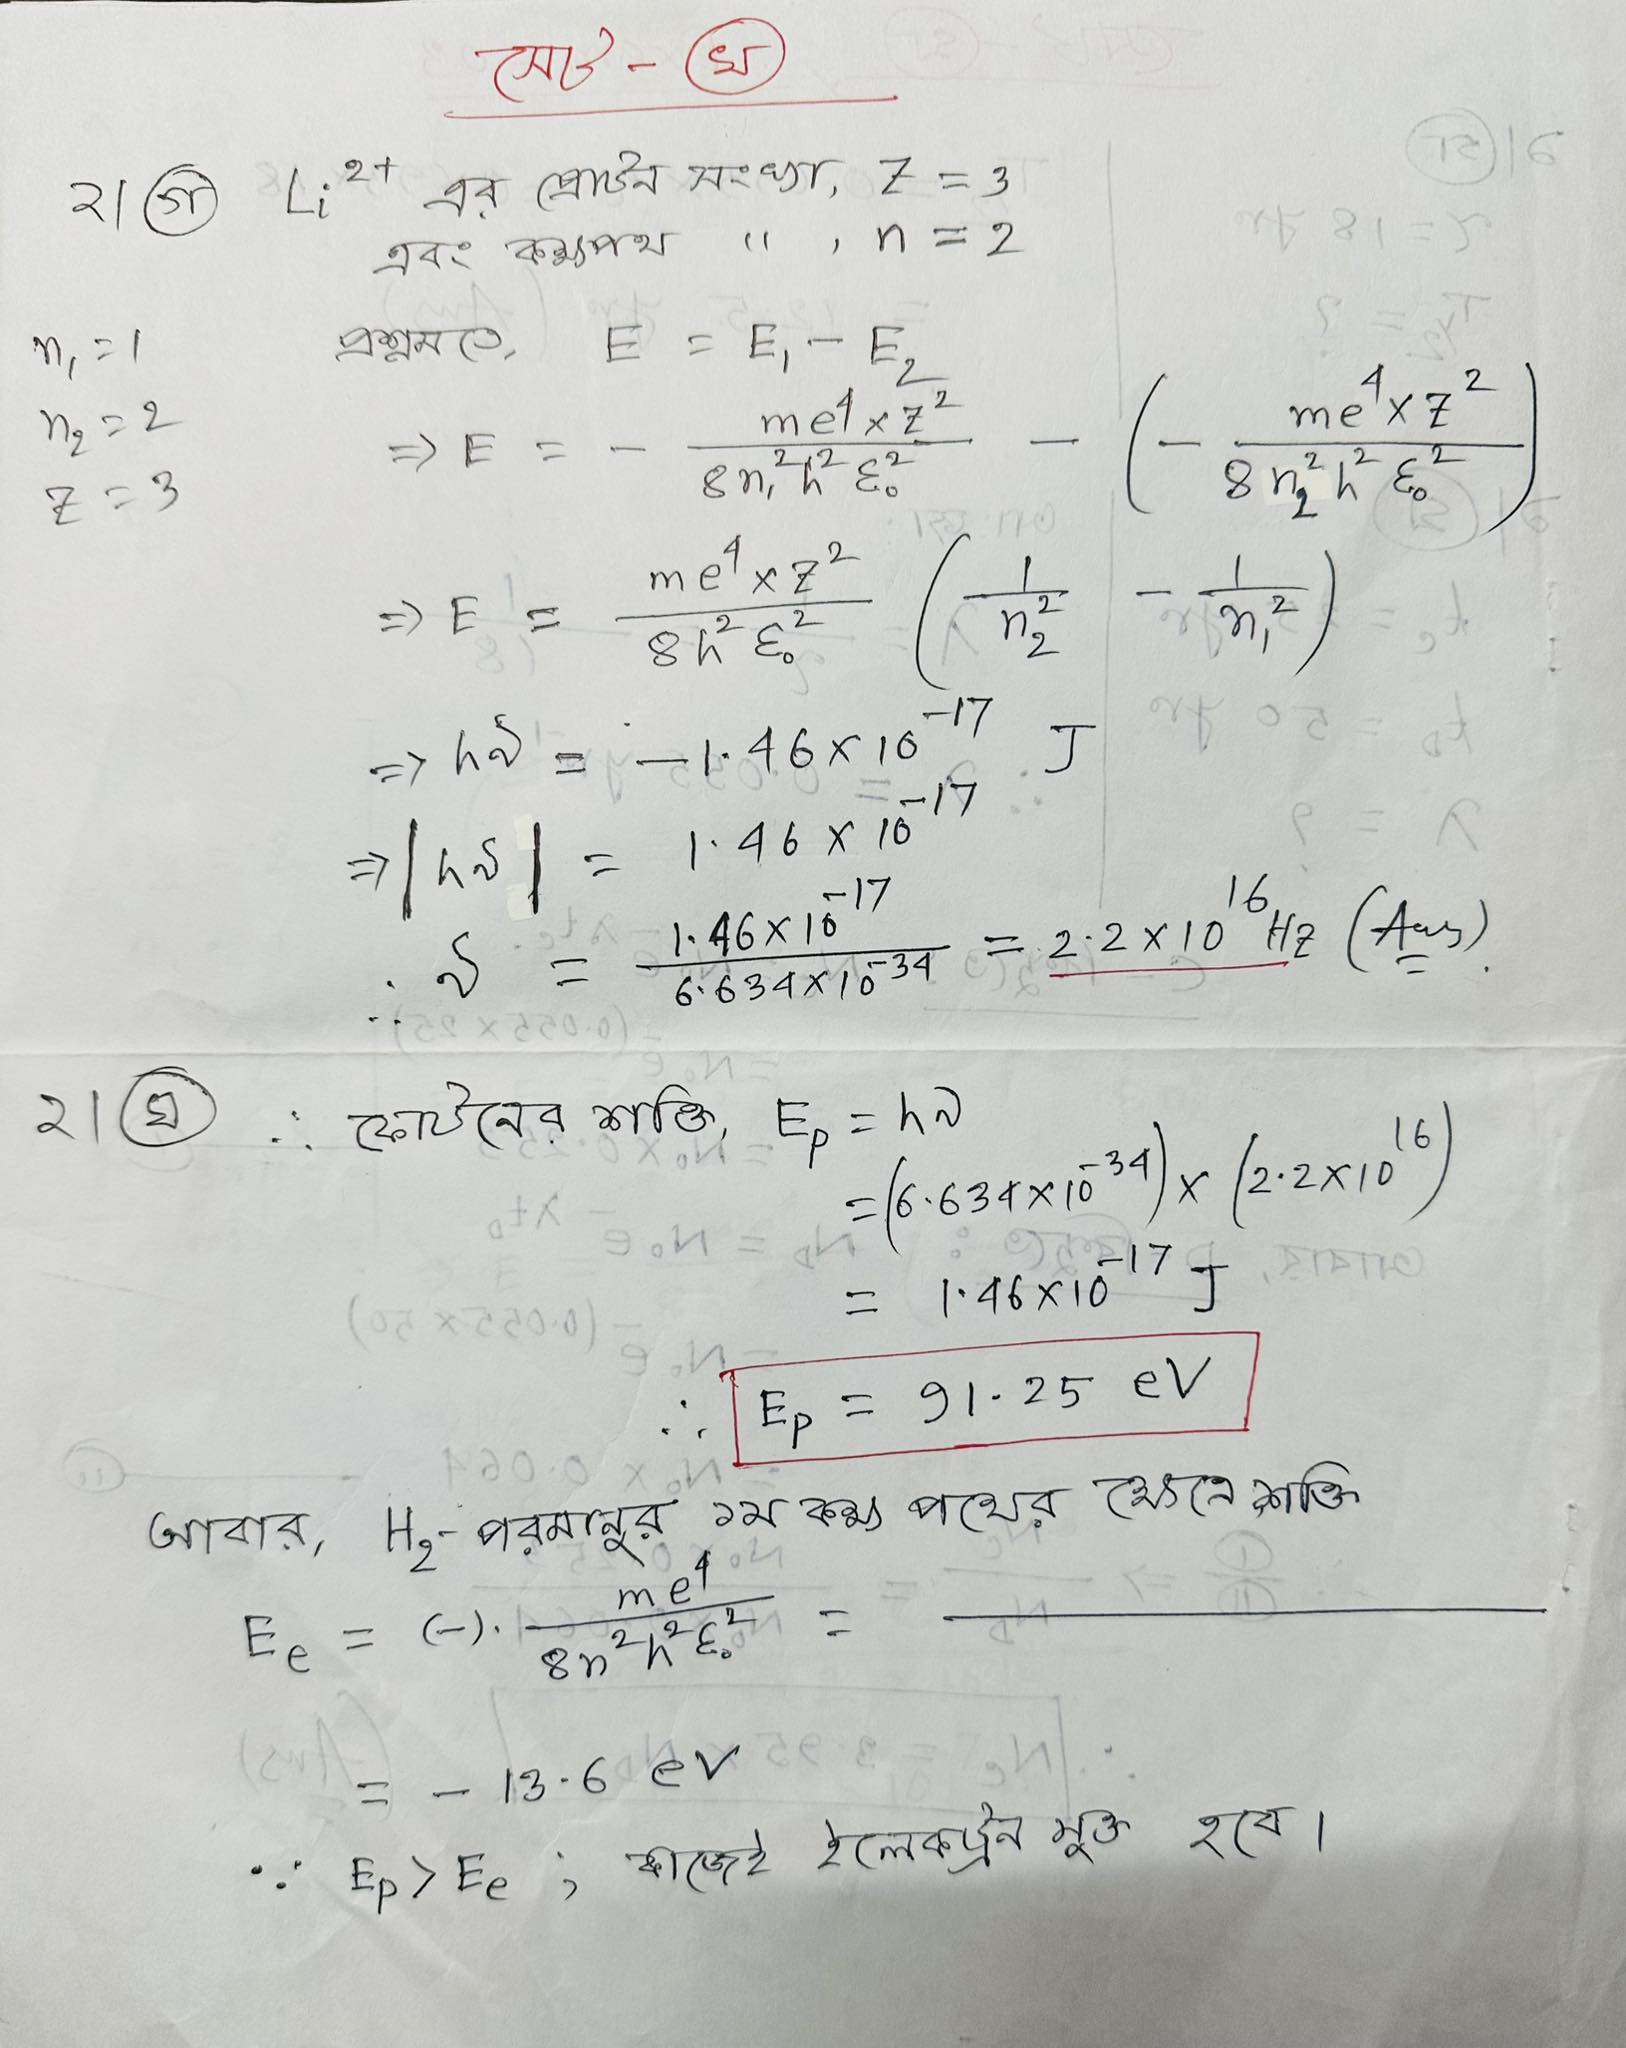 সেট - (খ)
২। (গ) Li²⁺ এর প্রোটন সংখ্যা, Z = 3
এবং কক্ষপথ " , n = 2
n₁ = 1
n₂ = 2
Z = 3
প্রশ্নমতে, E = E₁ - E₂
⇒ E = - me⁴ × Z² / 8n₁²h²ε₀² - (- me⁴ × Z² / 8n₂²h²ε₀²)
⇒ E = me⁴ × Z² / 8h²ε₀² (1/n₂² - 1/n₁²)
⇒ hν = -1.46 × 10⁻¹⁷ J
⇒ |hν| = 1.46 × 10⁻¹⁷
∴ ν = 1.46 × 10⁻¹⁷ / 6.634 × 10⁻³⁴ = 2.2 × 10¹⁶ Hz (Ans).
২। (ঘ) ∴ ফোটনের শক্তি, Eₚ = hν
= (6.634 × 10⁻³⁴) × (2.2 × 10¹⁶)
= 1.46 × 10⁻¹⁷ J
∴ Eₚ = 91.25 eV
আবার, H₂ - পরমানুর ১ম কক্ষ পথের শক্তি
Eₑ = (-). me⁴ / 8n²h²ε₀² =
= - 13.6 eV
∵ Eₚ > Eₑ ; কাজেই ইলেকট্রন মুক্ত হবে।